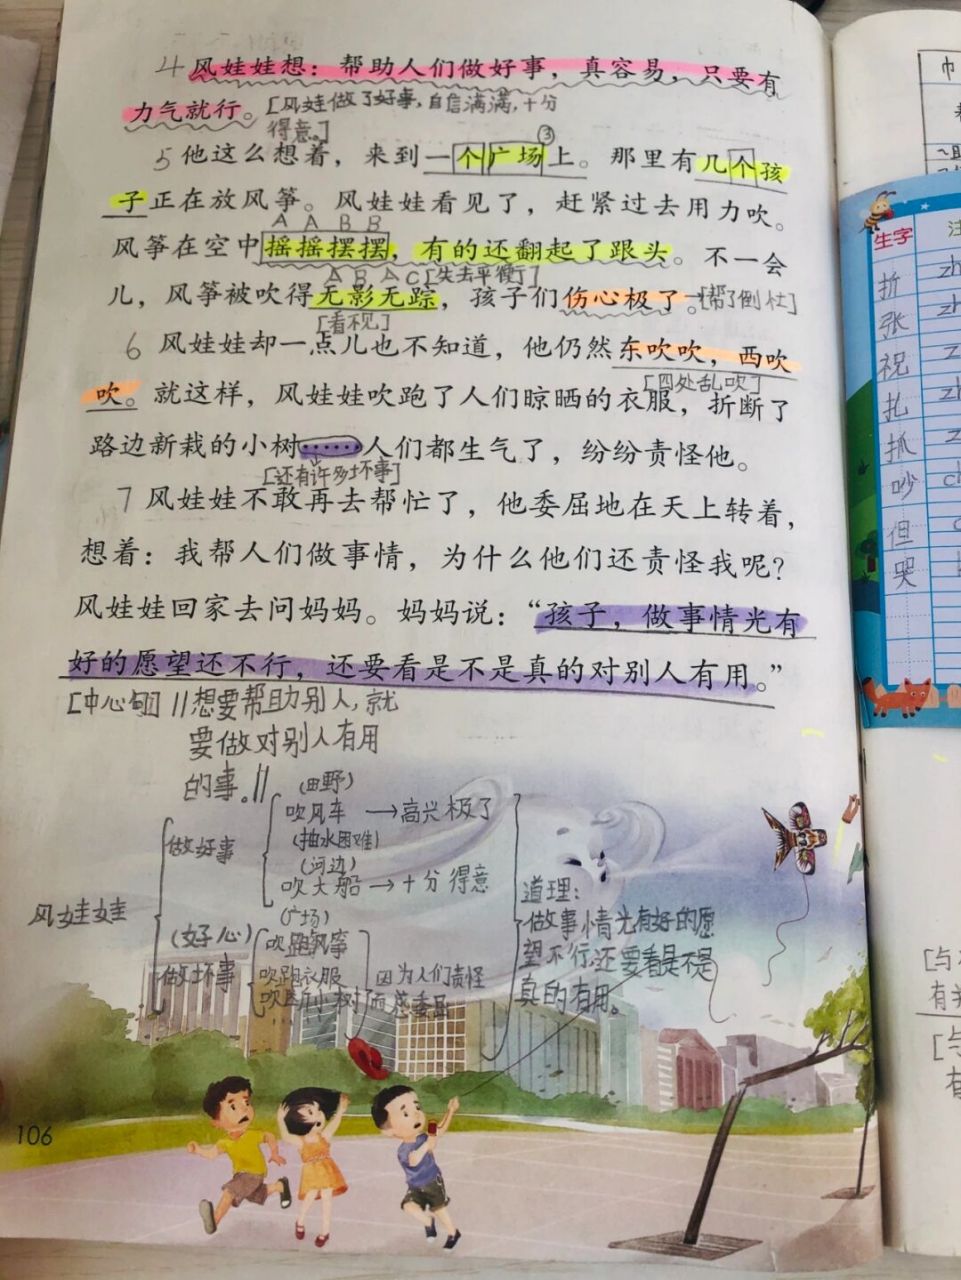 4 风娃娃想：帮助人们做好事，真容易，只要有
力气就行。[风娃做了好事,自信满满,十分
得意。]
③
5 他这么想着，来到一个广场上。那里有几个孩
子正在放风筝。风娃娃看见了，赶紧过去用力吹。
A A B B
风筝在空中摇摇摆摆，有的还翻起了跟头。不一会
A B A C [失去平衡了]
儿，风筝被吹得无影无踪，孩子们伤心极了。[帮了倒忙]
[看不见]
6 风娃娃却一点儿也不知道，他仍然东吹吹，西吹
[四处乱吹]
吹。就这样，风娃娃吹跑了人们晾晒的衣服，折断了
路边新栽的小树……人们都生气了，纷纷责怪他。
[还有许多坏事]
7 风娃娃不敢再去帮忙了，他委屈地在天上转着，
想着：我帮人们做事情，为什么他们还责怪我呢？
风娃娃回家去问妈妈。妈妈说：“孩子，做事情光有
好的愿望还不行，还要看是不是真的对别人有用。”
[中心句] //想要帮助别人,就
要做对别人有用
的事。//
(田野)
吹风车 →高兴极了
(抽水困难)
做好事
(河边)
吹大船 →十分得意
风娃娃
(广场)
(好心)
做坏事
吹跑风筝
吹跑衣服
吹断小树
因为人们责怪
而感委屈
道理:
做事情光有好的愿
望不行,还要看是不是
真的有用。
106
巾
生字
注
折 zh
张 zh
祝
扎 zh
抓
吵 ch
但
哭
[与
有关
[与